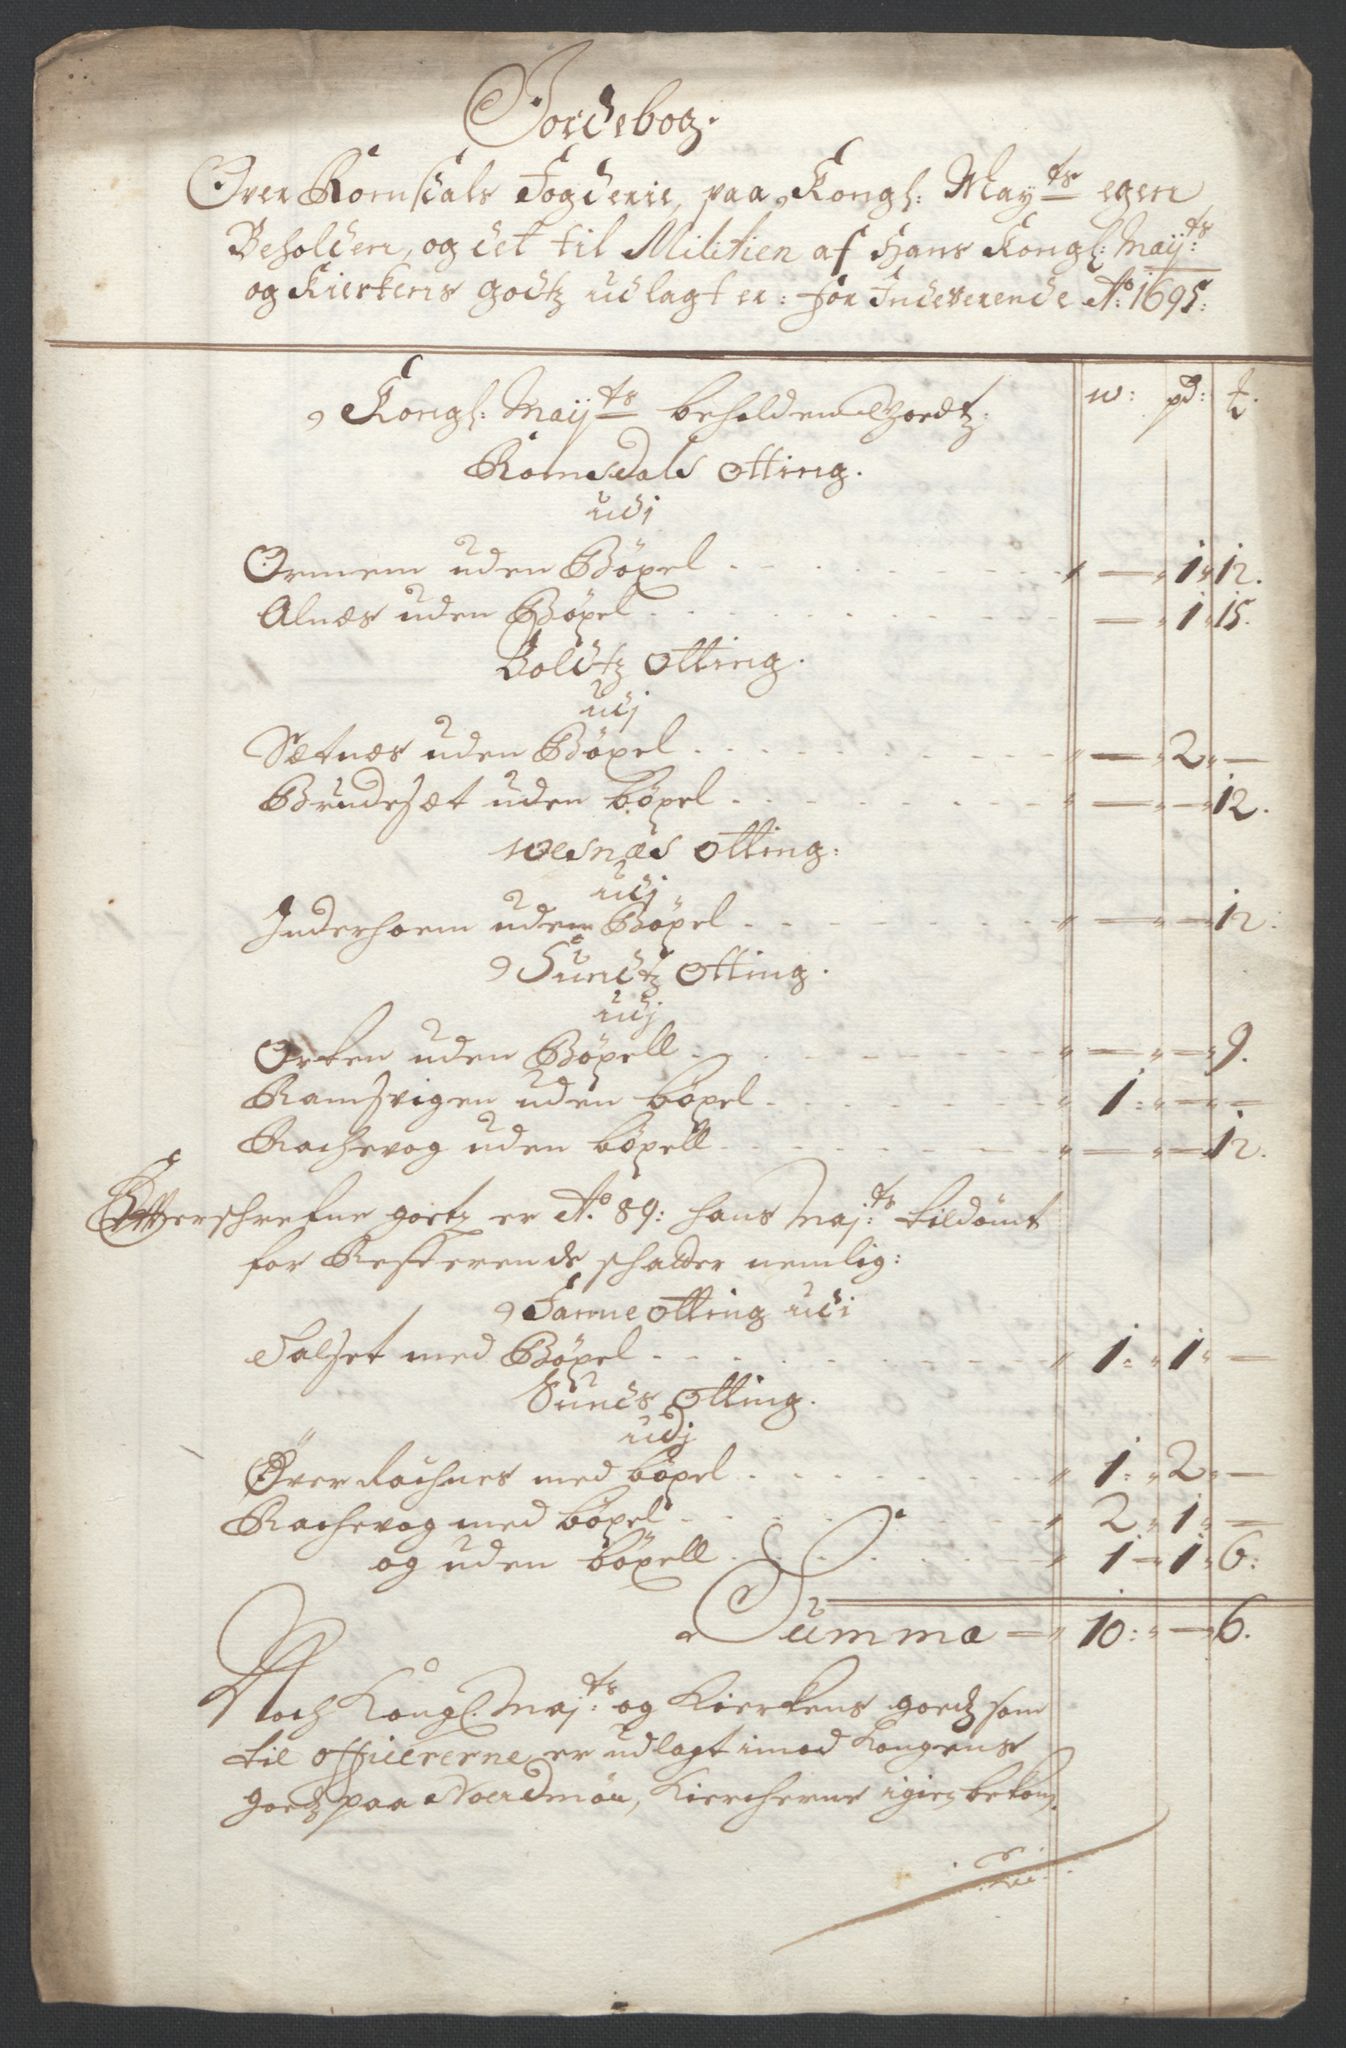 Jordebog.
Over Romsdals Fogderie, paa Kongl: Mayts egen
Beholden, og det til Militien af Hans Kongl: Maij:ts
og Kierkens godtz udlagt er: for Indeverende Ao. 1695:
w: pd: ℔.
Kongl: Maijts beholdene Goedtz:
Romsdals Otting.
udi
Ormem uden Bøxel . . . . . . „ — „ 1 „ 12.
Alnæs uden Bøxel . . . . . . — „ 1 „ 15.
Boldtz Otting.
udj
Sætnæs uden Bøxel . . . . . . „ — „ 2 „ —
Brudesæt uden bøxel . . . . . . „ — „ — „ 12.
Wesnæs Otting:
udj
Inderhoem uden Bøxel . . . . . . „ — „ — „ 12:
Sundtz Otting.
udj
Orken uden Bøxell . . . . . . „ — „ — „ 9.
Ramsvigen uden bøxel . . . . . . „ 1: „ — „ —
Rachevog uden bøxell . . . . . . „ — „ — „ 12.
Efterschrefne goetz er Ao. 89: hans Maj:ts tildømt
for Resterende schatter nemlig:
Fanne Otting udi
Salset med Bøxel . . . . . . „ 1: „ 1 „ —
Sunds Otting.
udj
Øver Rochnes med bøxel . . . . . . „ 1: „ 2 „ —
Rachevog med bøxel . . . . . . „ 2 „ 1 „ —
og uden bøxell . . . . . . „ 1 — „ 1 „ 6:
Summa — „ 10: „ — „ 6.
Noch Kongl. Maj:ts og Kierkens goedz som
til officererne er udlagt imod Kongens
goedz paa Noerdmør, Kiercherne igien bekom.